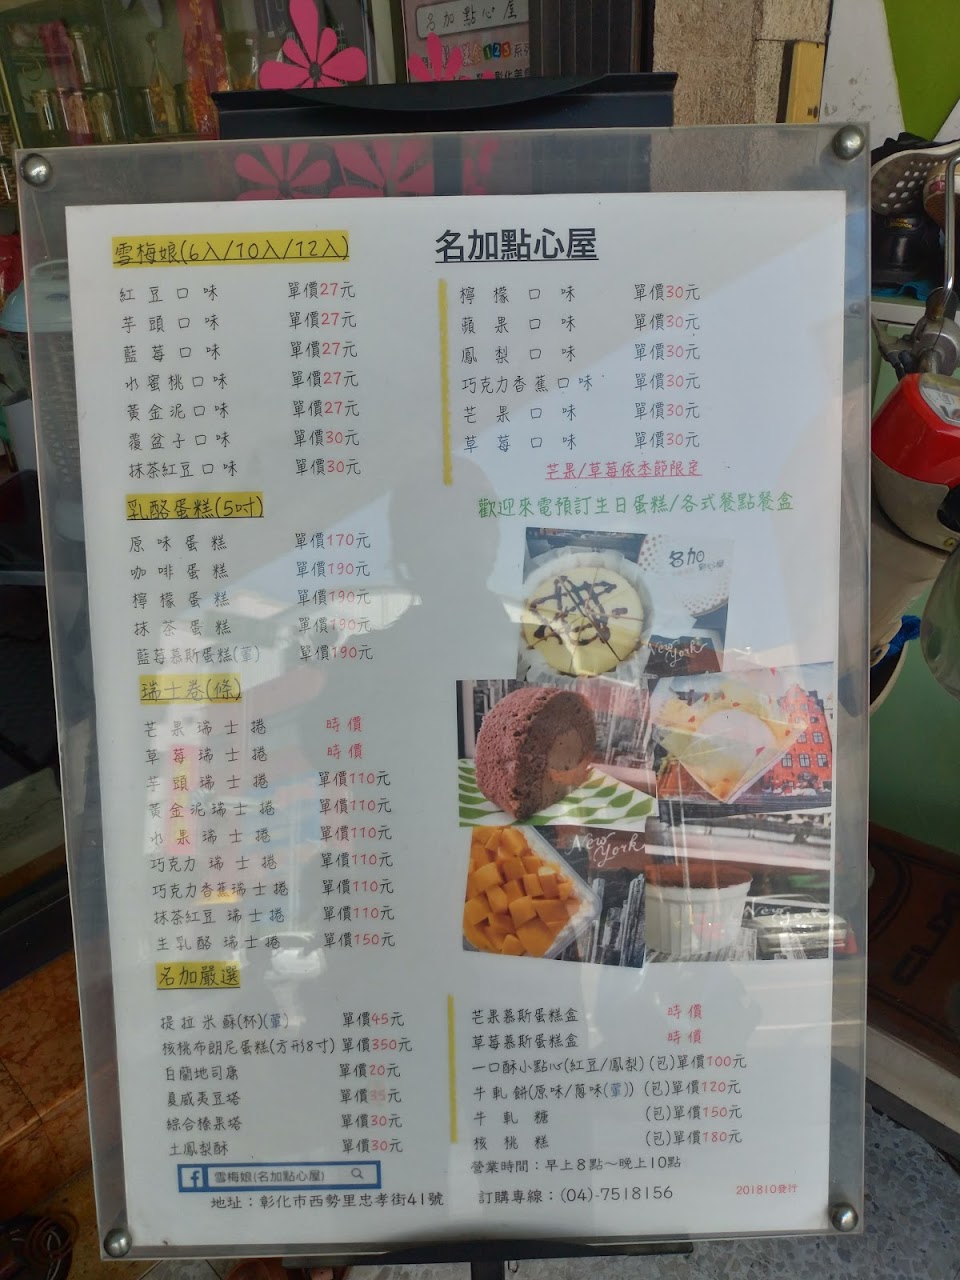 名加點心屋
123系列
名加點心屋
雪梅娘(6入/10入/12入)
紅豆口味 單價27元
芋頭口味 單價27元
藍莓口味 單價27元
水蜜桃口味 單價27元
黃金泥口味 單價27元
覆盆子口味 單價30元
抹茶紅豆口味 單價30元
檸檬口味 單價30元
蘋果口味 單價30元
鳳梨口味 單價30元
巧克力香蕉口味 單價30元
芒果口味 單價30元
草莓口味 單價30元
芒果/草莓依季節限定
歡迎來電預訂生日蛋糕/各式餐點餐盒
乳酪蛋糕(5吋)
原味蛋糕 單價170元
咖啡蛋糕 單價190元
檸檬蛋糕 單價190元
抹茶蛋糕 單價190元
藍莓慕斯蛋糕(葷) 單價190元
名加
點心屋
New York
New York
New York
瑞士卷(條)
芒果瑞士捲 時價
草莓瑞士捲 時價
芋頭瑞士捲 單價110元
黃金泥瑞士捲 單價110元
水果瑞士捲 單價110元
巧克力瑞士捲 單價110元
巧克力香蕉瑞士捲 單價110元
抹茶紅豆瑞士捲 單價110元
生乳酪瑞士捲 單價150元
名加嚴選
提拉米蘇(杯)(葷) 單價45元
核桃布朗尼蛋糕(方形8寸) 單價350元
白蘭地司康 單價20元
夏威夷豆塔 單價35元
綜合榛果塔 單價30元
土鳳梨酥 單價30元
芒果慕斯蛋糕盒 時價
草莓慕斯蛋糕盒 時價
一口酥小點心(紅豆/鳳梨) (包)單價100元
牛軋餅(原味/蔥味(葷)) (包)單價120元
牛軋糖 (包)單價150元
核桃糕 (包)單價180元
營業時間：早上8點～晚上10點
f 雪梅娘(名加點心屋)
地址：彰化市西勢里忠孝街41號 訂購專線：(04)-7518156
201810發行